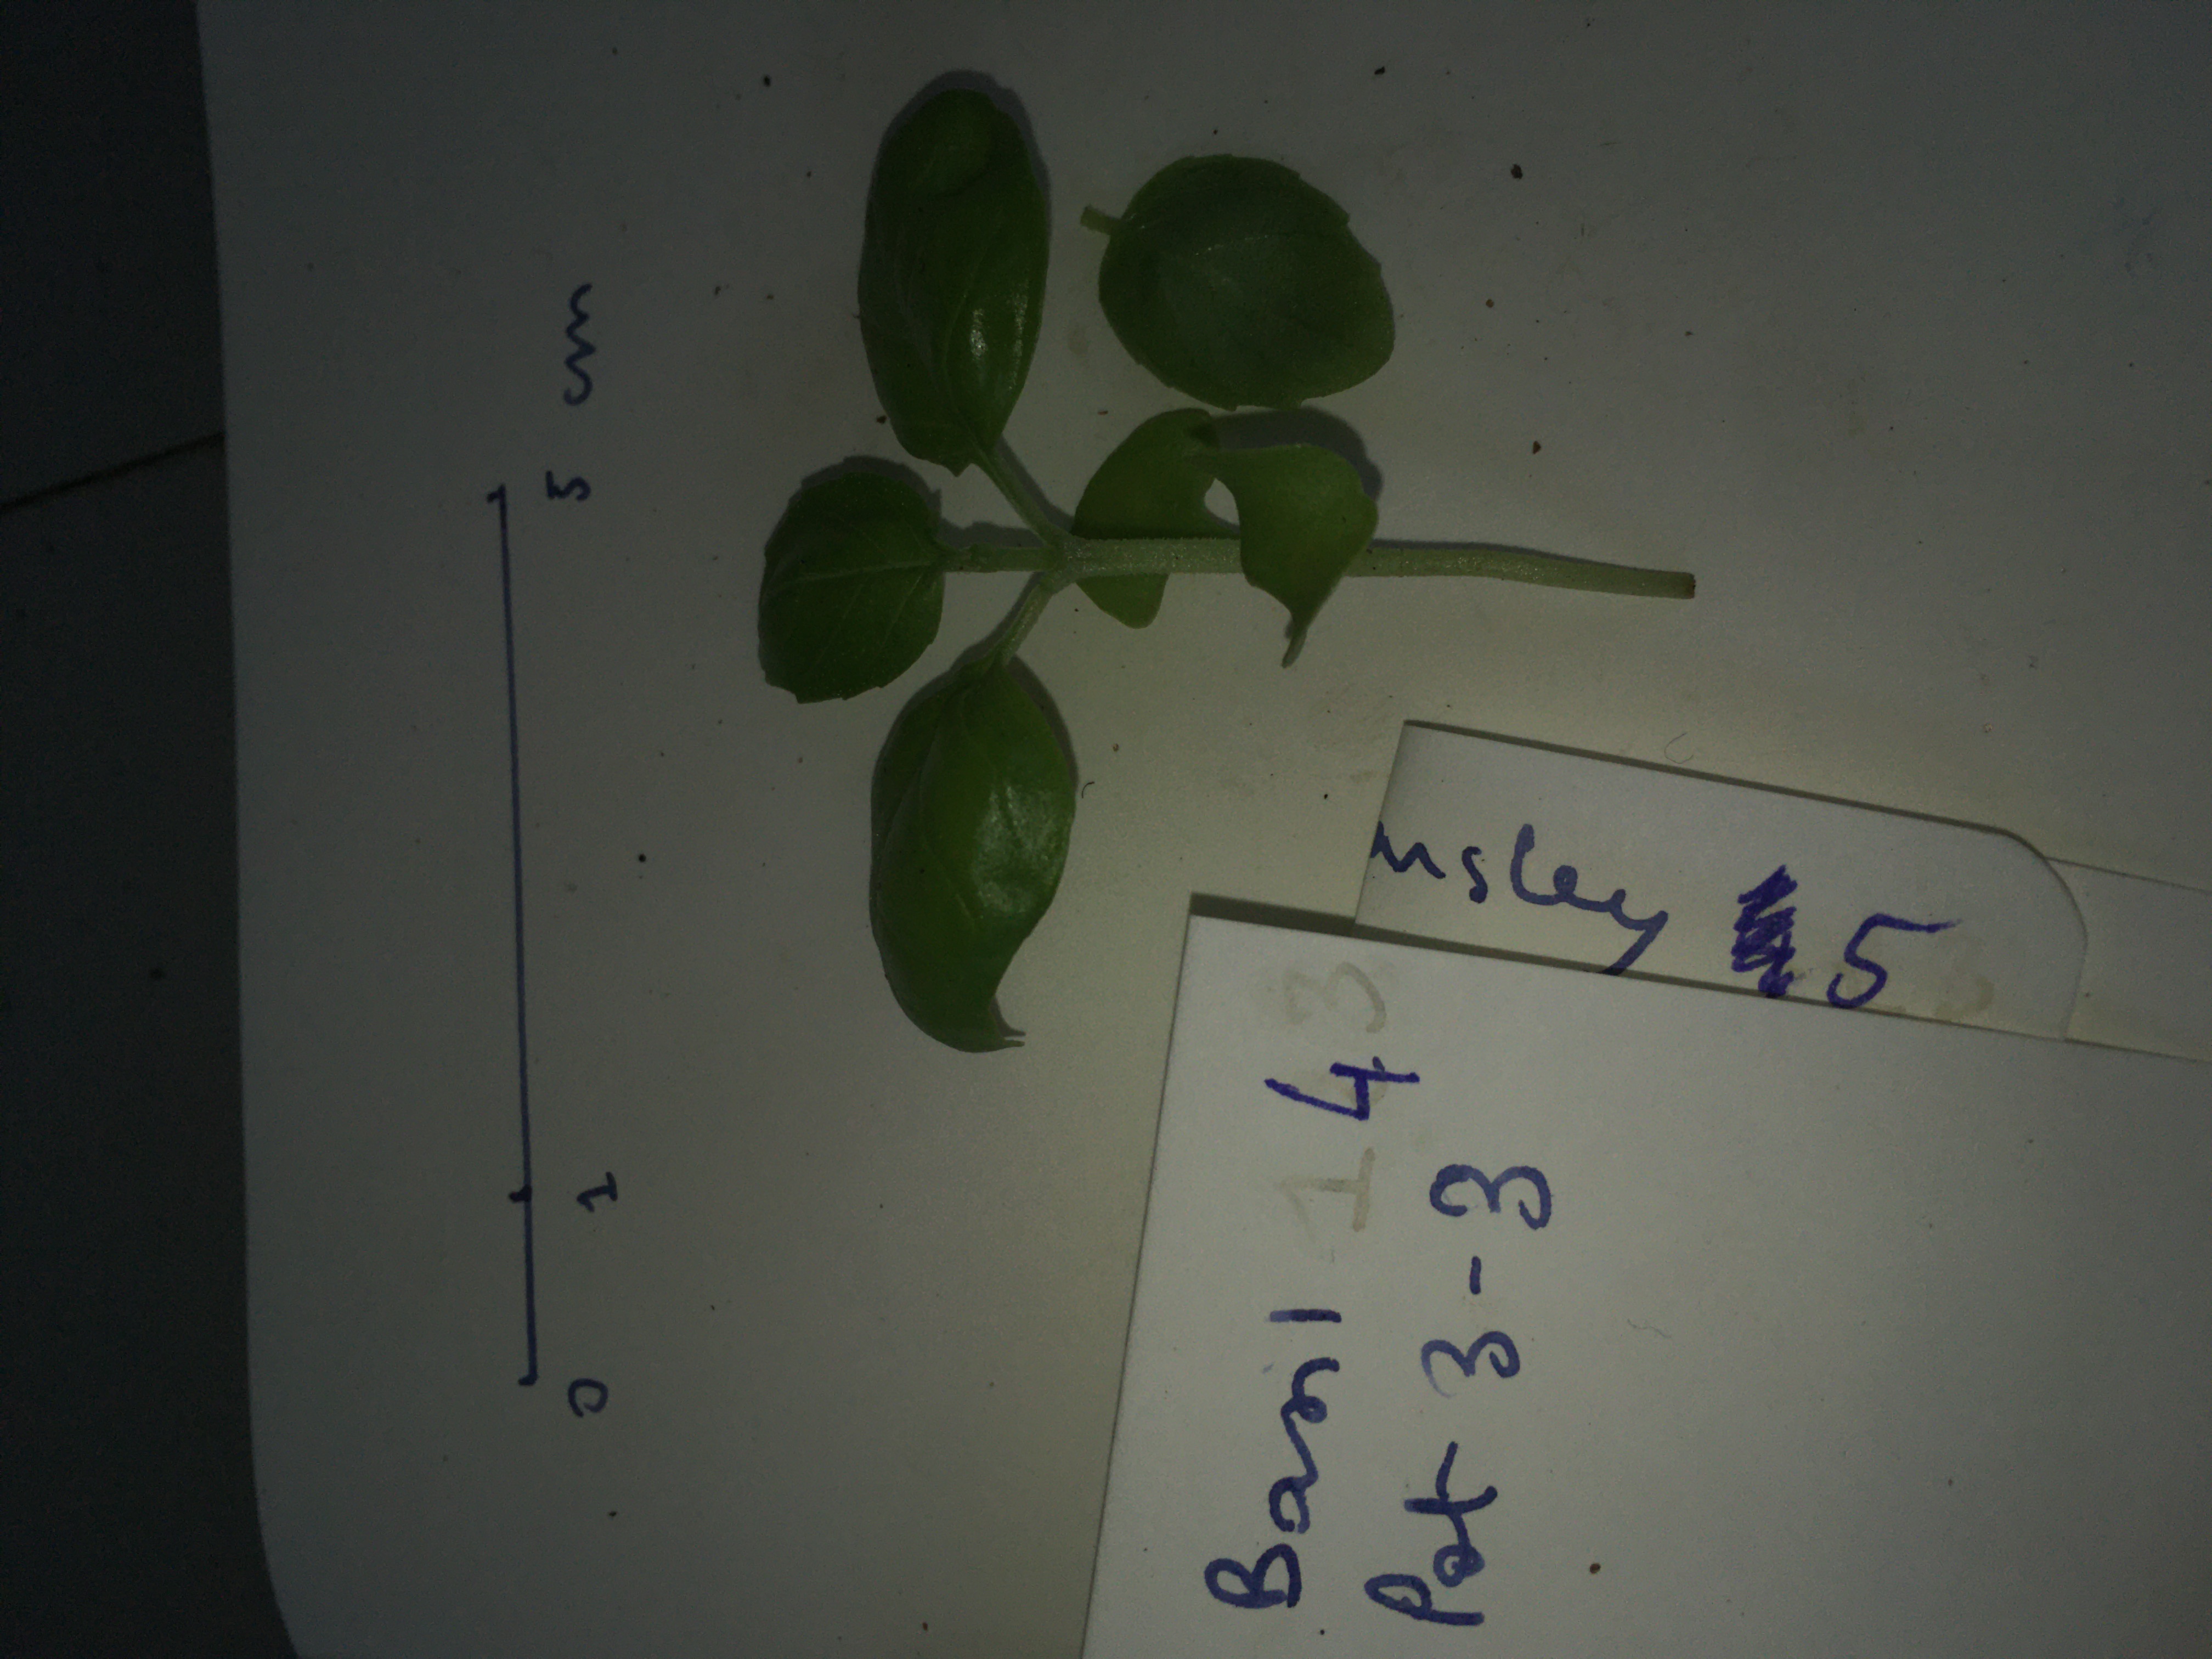 0 1 5 cm
Basil 4
Pot 3-3
sley 5